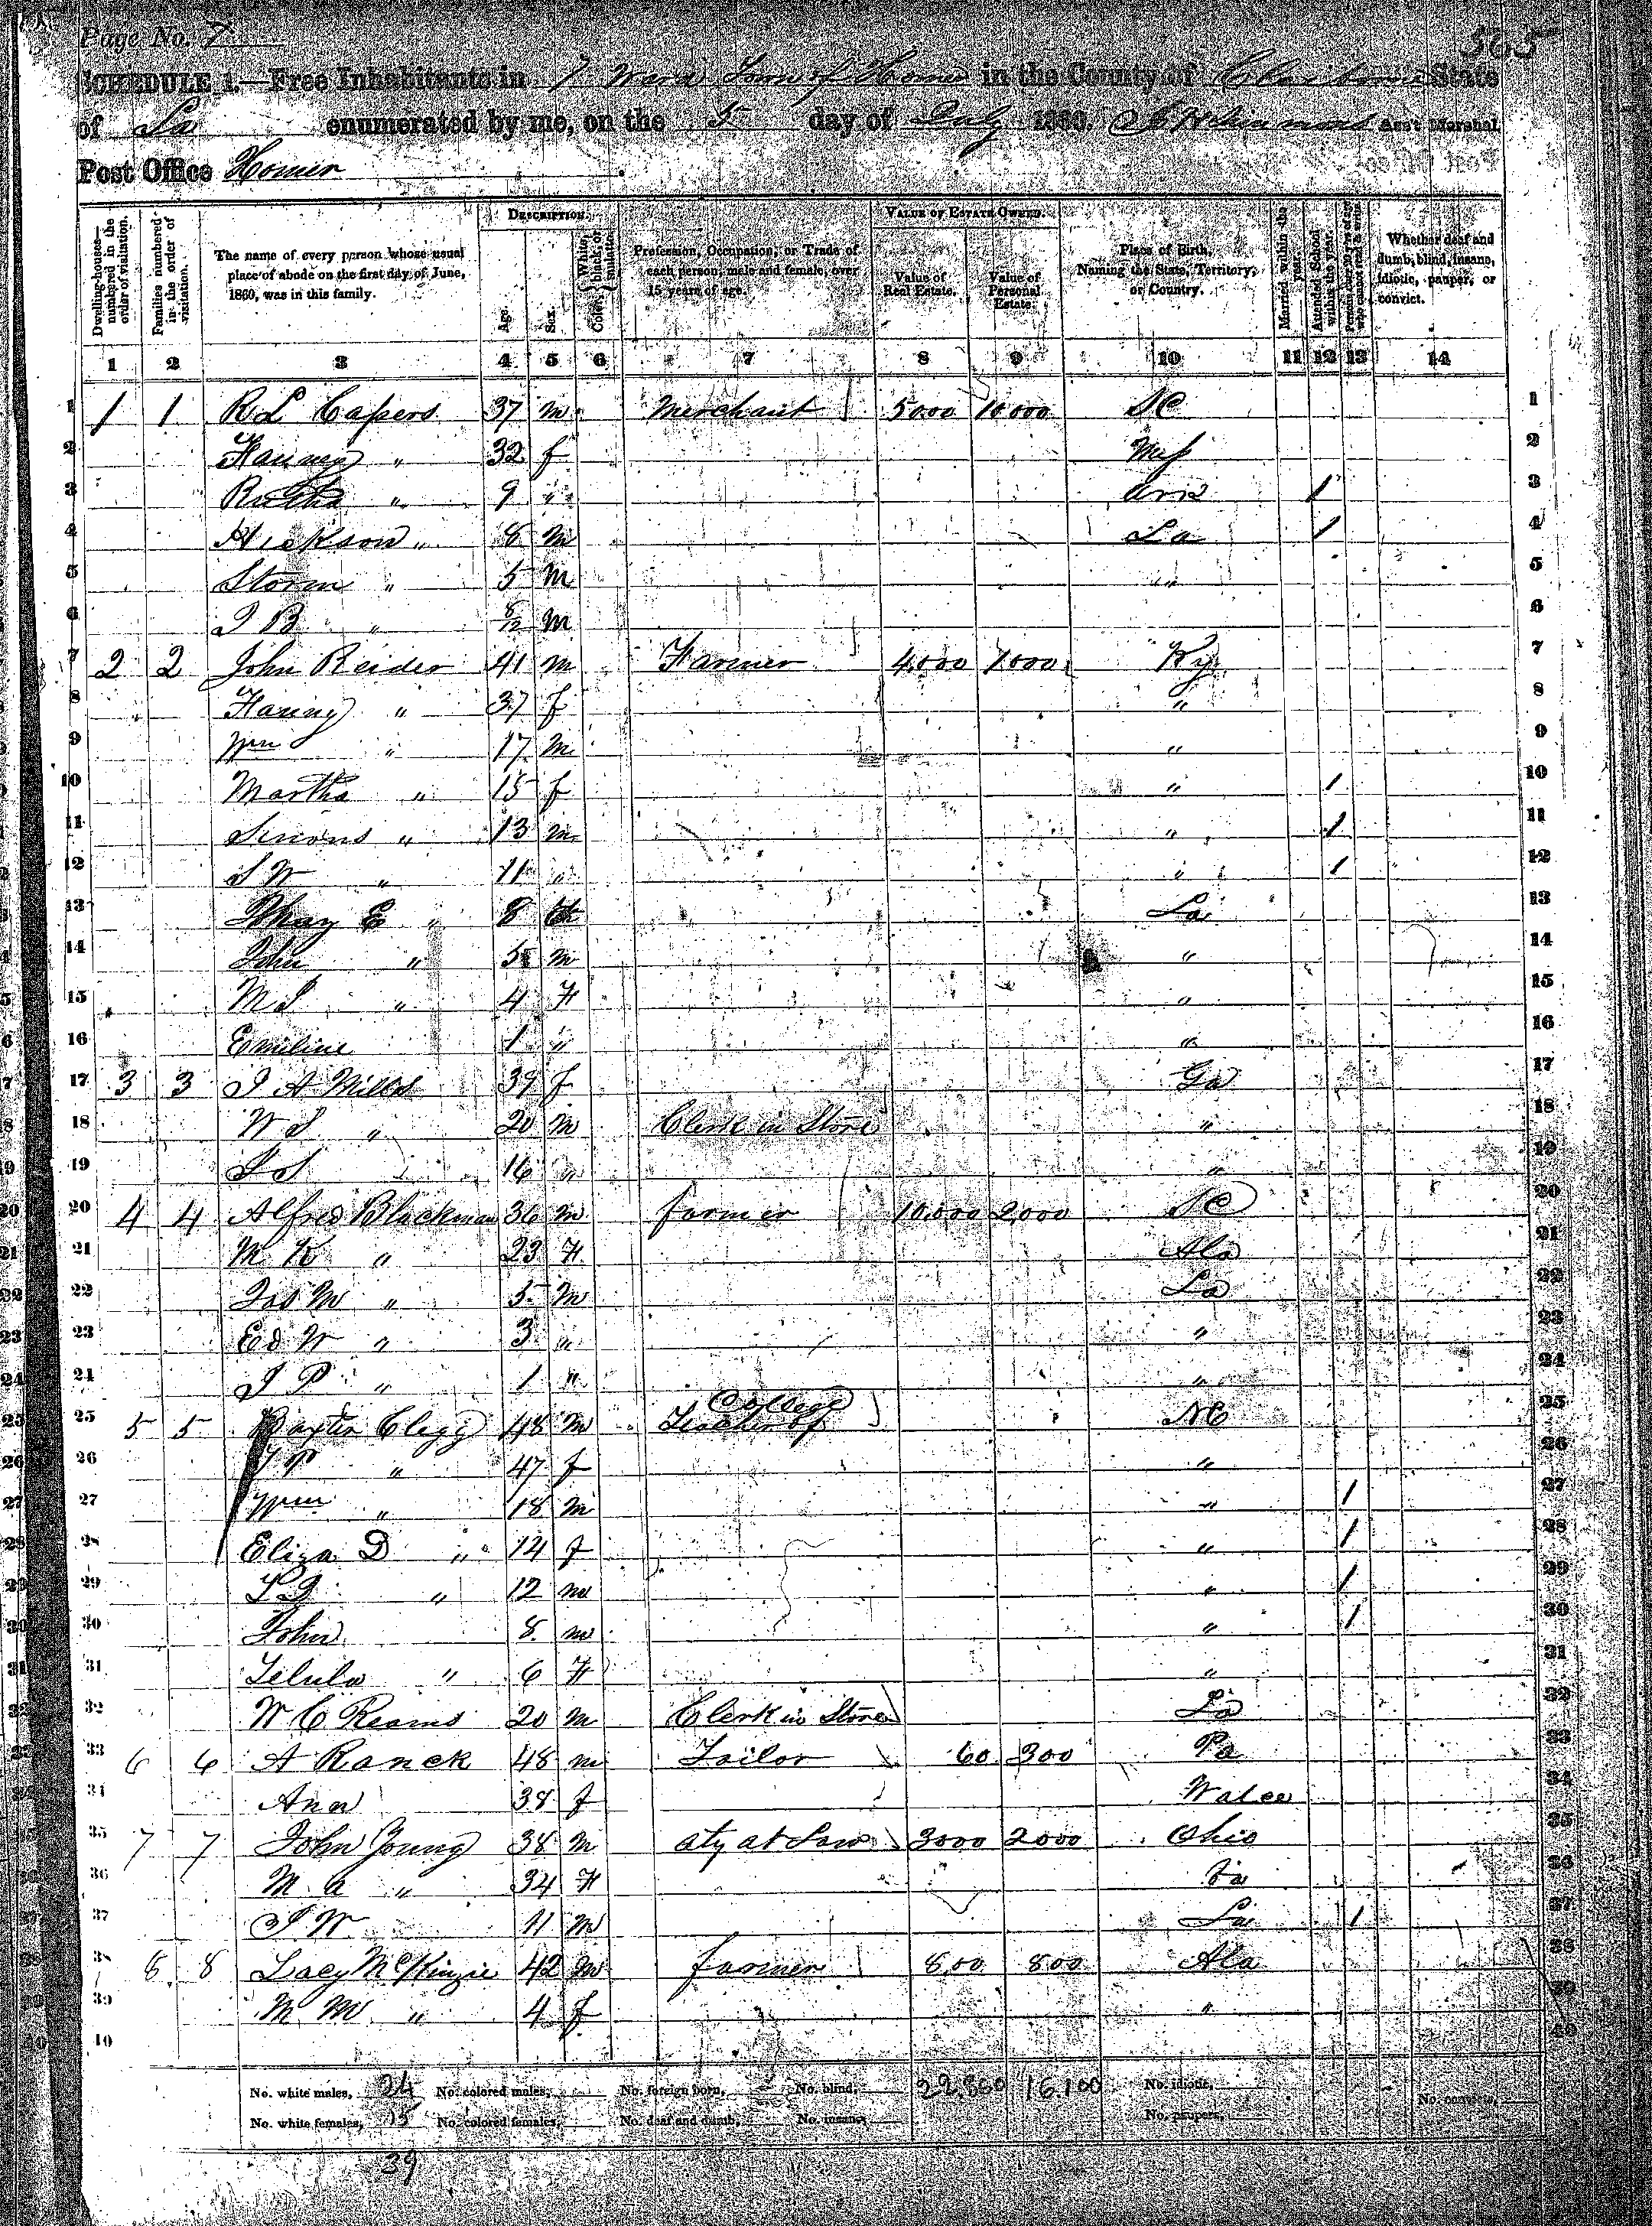 Page No. 7
365
SCHEDULE 1.—Free Inhabitants in 7 Ward Town of Homer in the County of Claiborne State
of La enumerated by me, on the 5 day of July 1860. Ass't Marshal.
Post Office Homer
Dwelling-houses—numbered in the order of visitation.
Families numbered in the order of visitation.
The name of every person whose usual place of abode on the first day of June, 1860, was in this family.
DESCRIPTION.
Age.
Sex.
Color, White, black, or mulatto.
Profession, Occupation, or Trade of each person, male and female, over 15 years of age.
VALUE OF ESTATE OWNED.
Value of Real Estate.
Value of Personal Estate.
Place of Birth, Naming the State, Territory, or Country.
Married within the year.
Attended School within the year.
Persons over 20 y'rs of age who cannot read & write.
Whether deaf and dumb, blind, insane, idiotic, pauper, or convict.
1 2 3 4 5 6 7 8 9 10 11 12 13 14
1 1 1 R L Capers 37 m Merchant 5000 10000 SC 1
2 Fanney " 32 f 2
3 " 9 " / 3
4 Hickson " 8 m La / 4
5 Storm " 5 M " 5
6 J B " 8/12 M 6
7 2 2 John Reider 41 m Farmer 4000 1000 Ky 7
8 Fanny " 37 f " 8
9 Wm " 17 m " 9
10 Martha " 15 f " / 10
11 " 13 m " / 11
12 S W " 11 " " / 12
13 E " 8 La 13
14 John " 5 m " 14
15 M S " 4 F " 15
16 Emiline 1 " " 16
17 3 3 J A Mills 39 f Ga 17
18 W S " 20 m Clerk in Store " 18
19 J S 16 " " 19
20 4 4 Alfred Blackman 36 m farmer 10,000 2,000 SC 20
21 M K " 23 F Ala 21
22 Jas M " 5 M La 22
23 Ed W " 3 " " 23
24 J P " 1 " " 24
25 5 5 Baxter Clegg 48 M Teacher of College NC 25
26 " 47 f " 26
27 Wm " 18 m " / 27
28 Eliza D " 14 f " / 28
29 " 12 m " / 29
30 John 8 m " / 30
31 Lelula " 6 F " 31
32 W C Reams 20 m Clerk in Store La 32
33 6 6 A Ranck 48 m Tailor 60 300 Pa 33
34 Ann 38 f Wales 34
35 7 7 John Young 38 M aty at Law 3000 2000 Ohio 35
36 M a " 34 F 36
37 J W 11 M La / 37
38 8 8 Lacy McKinzie 42 M farmer 800 800 Ala 38
39 M M " 4 f " 39
40 40
No. white males, 24 No. colored males, No. foreign born, No. blind, 22,860 16,100 No. idiotic,
No. white females, 15 No. colored females, No. deaf and dumb, No. insane, No. paupers, No. convicts,
39